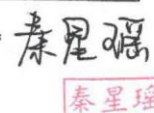 秦星瑶
秦星瑶